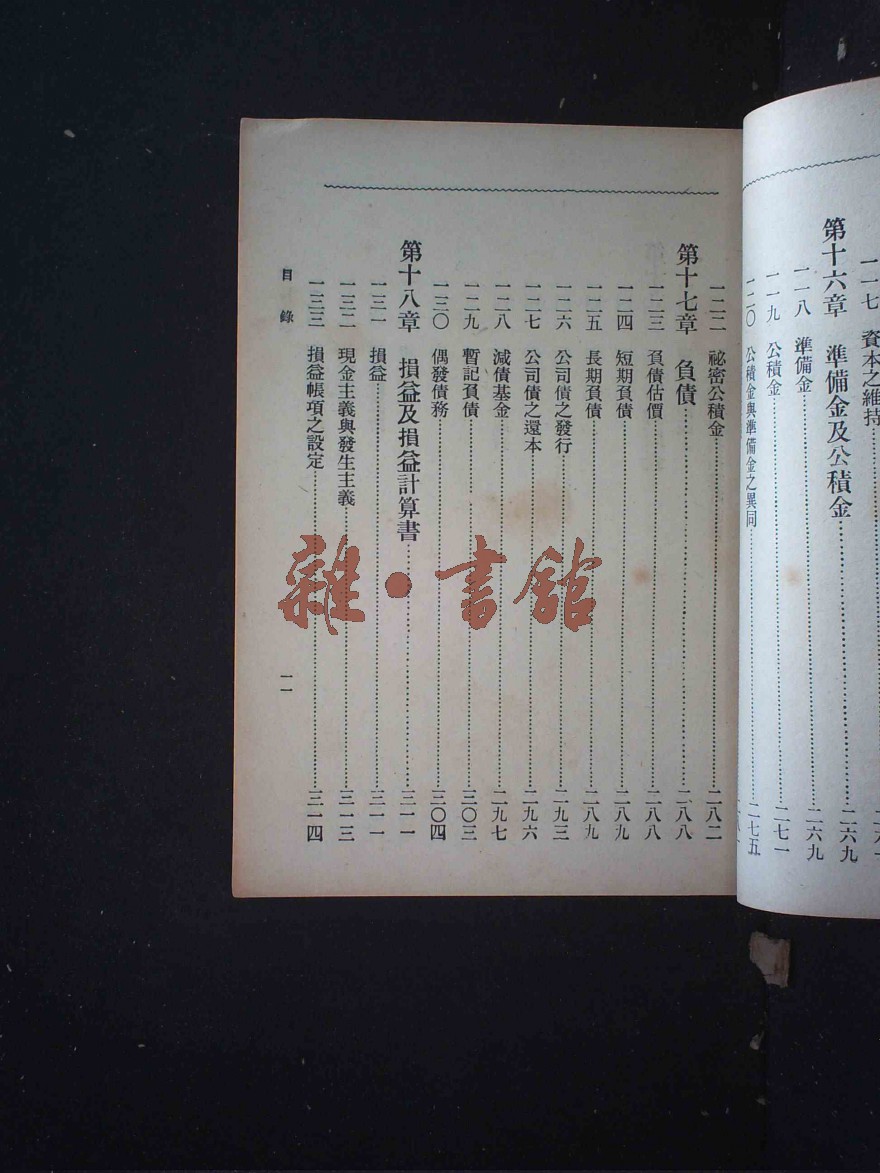 一一七 資本之維持
第十六章 準備金及公積金……二六九
一一八 準備金……二六九
一一九 公積金……二七一
一二〇 公積金與準備金之異同……二七五
一二二 祕密公積金……二八二
第十七章 負債……二八八
一二三 負債估價……二八八
一二四 短期負債……二八九
一二五 長期負債……二八九
一二六 公司債之發行……二九三
一二七 公司債之還本……二九六
一二八 減債基金……二九七
一二九 暫記負債……三〇三
一三〇 偶發債務……三〇四
第十八章 損益及損益計算書……三一一
一三一 損益……三一一
一三二 現金主義與發生主義……三一三
一三三 損益帳項之設定……三一四
目錄
一一
雜·書館